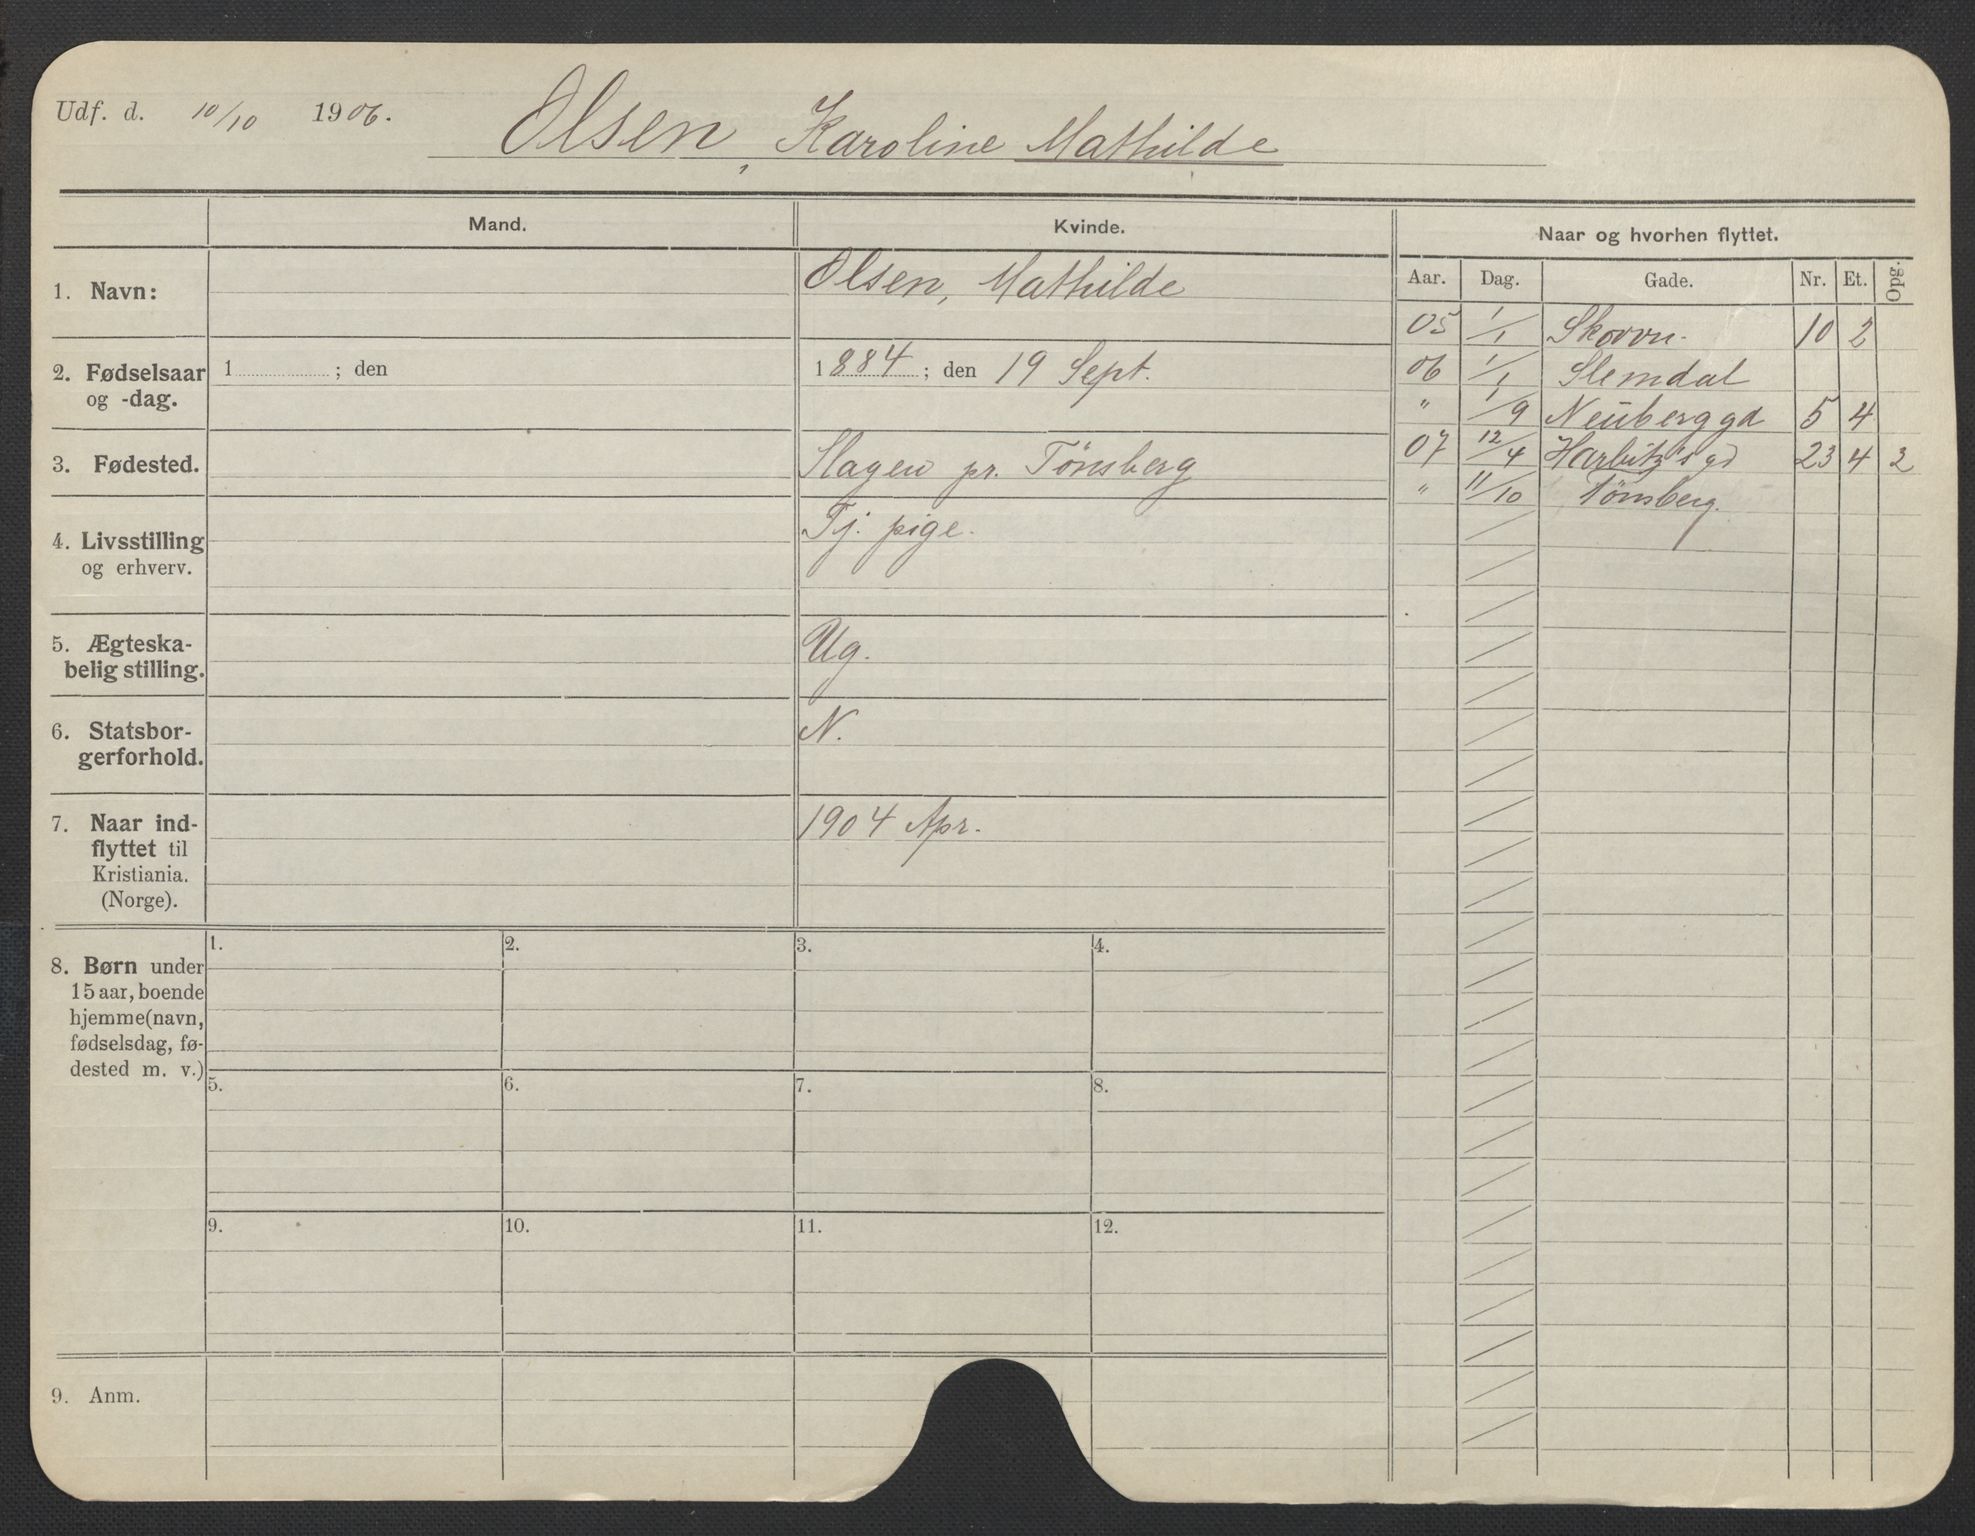 Udf. d. 10/10 1906.
Olsen, Karoline Mathilde
Mand.
Kvinde.
Naar og hvorhen flyttet.
Aar. Dag. Gade. Nr. Et. Opg.
1. Navn:
Olsen, Mathilde
2. Fødselsaar
og -dag.
1 ; den
1884 ; den 19 Sept.
3. Fødested.
Slagen pr. Tønsberg
4. Livsstilling
og erhverv.
Tj. pige.
5. Ægteska-
belig stilling.
Ug.
6. Statsbor-
gerforhold.
N.
7. Naar ind-
flyttet til
Kristiania.
(Norge).
1904 Apr.
05 1/1 Skovvn. 10 2
06 1/1 Slemdal
" 1/9 Neuberggd 5 4
07 12/4 Harbitz's gd 23 4 2
" 11/10 Tønsberg.
8. Børn under
15 aar, boende
hjemme (navn,
fødselsdag, fø-
dested m. v.)
1. 2. 3. 4.
5. 6. 7. 8.
9. 10. 11. 12.
9. Anm.